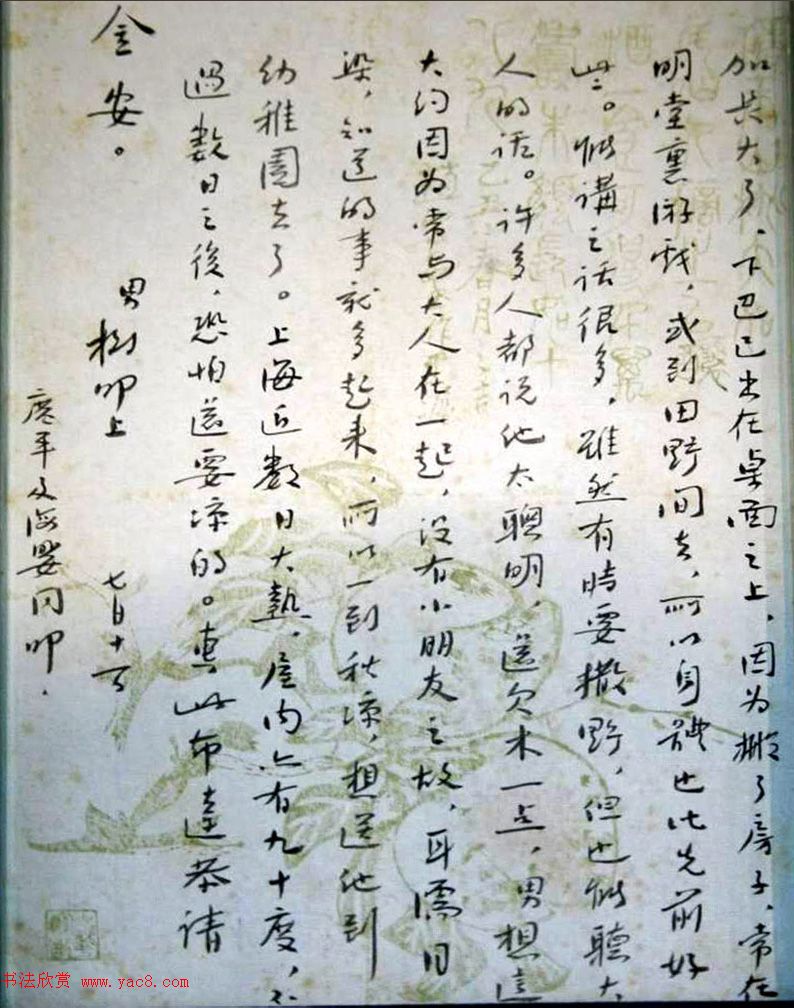 加長大了，下巴已出在桌面之上，因为搬了房子，常在
明堂裏游戏，或到田野间去，所以身體也比先前好
些。能講之话很多，雖然有時要撒野，但也能聽大
人的话。许多人都说他太聰明，還欠木一点，男想這
大约因为常与大人在一起，没有小朋友之故，耳濡目
染，知道的事就多起来，所以一到秋凉，想送他到
幼稚園去了。上海近數日大熱，屋内亦有九十度，不
過數日之後，恐怕還要凉的。專此布達，恭請
金安。
男樹叩上
七月十二
廣平及海嬰同叩．
书法欣赏 www.yac8.com